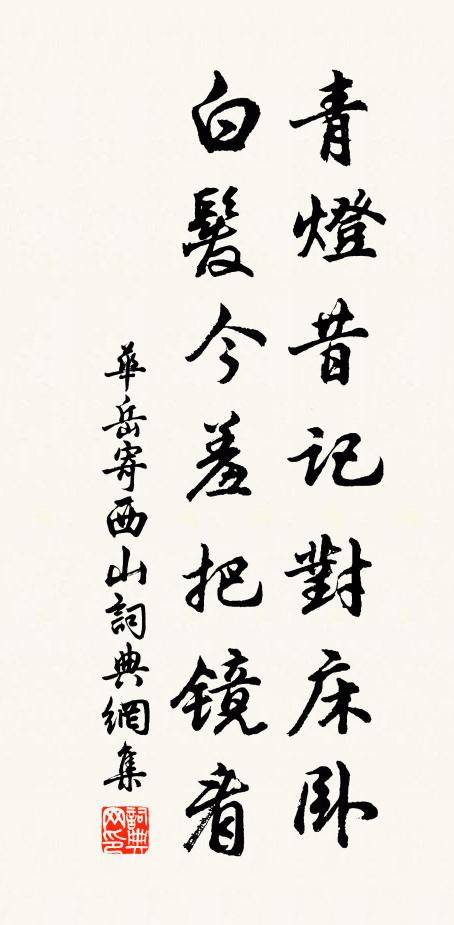 青燈昔記對床臥
白髮今羞把鏡看
華岳寄西山詞典網集
詞典網印